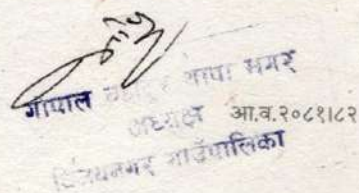 गोपाल बहादुर थापा मगर
अध्यक्ष आ.व.२०८१।८२
विजयनगर गाउँपालिका